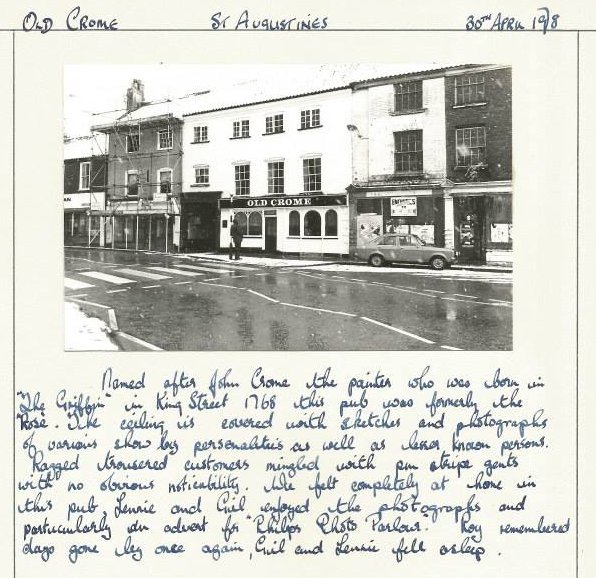 OLD CROME ST AUGUSTINES 30TH APRIL 1978
OLD CROME
Named after John Crome the painter who was born in
"The Griffin" in King Street 1768 this pub was formerly the
"Rose". The ceiling is covered with sketches and photographs
of various show biz personalities as well as lesser known persons.
Ragged trousered customers mingled with pin stripe gents
with no obvious noticability. We felt completely at home in
this pub, Lennie and Gril enjoyed the photographs and
particularly an advert for "Philips Photo Parlour". Roy remembered
days gone by once again, Gril and Lennie fell asleep.